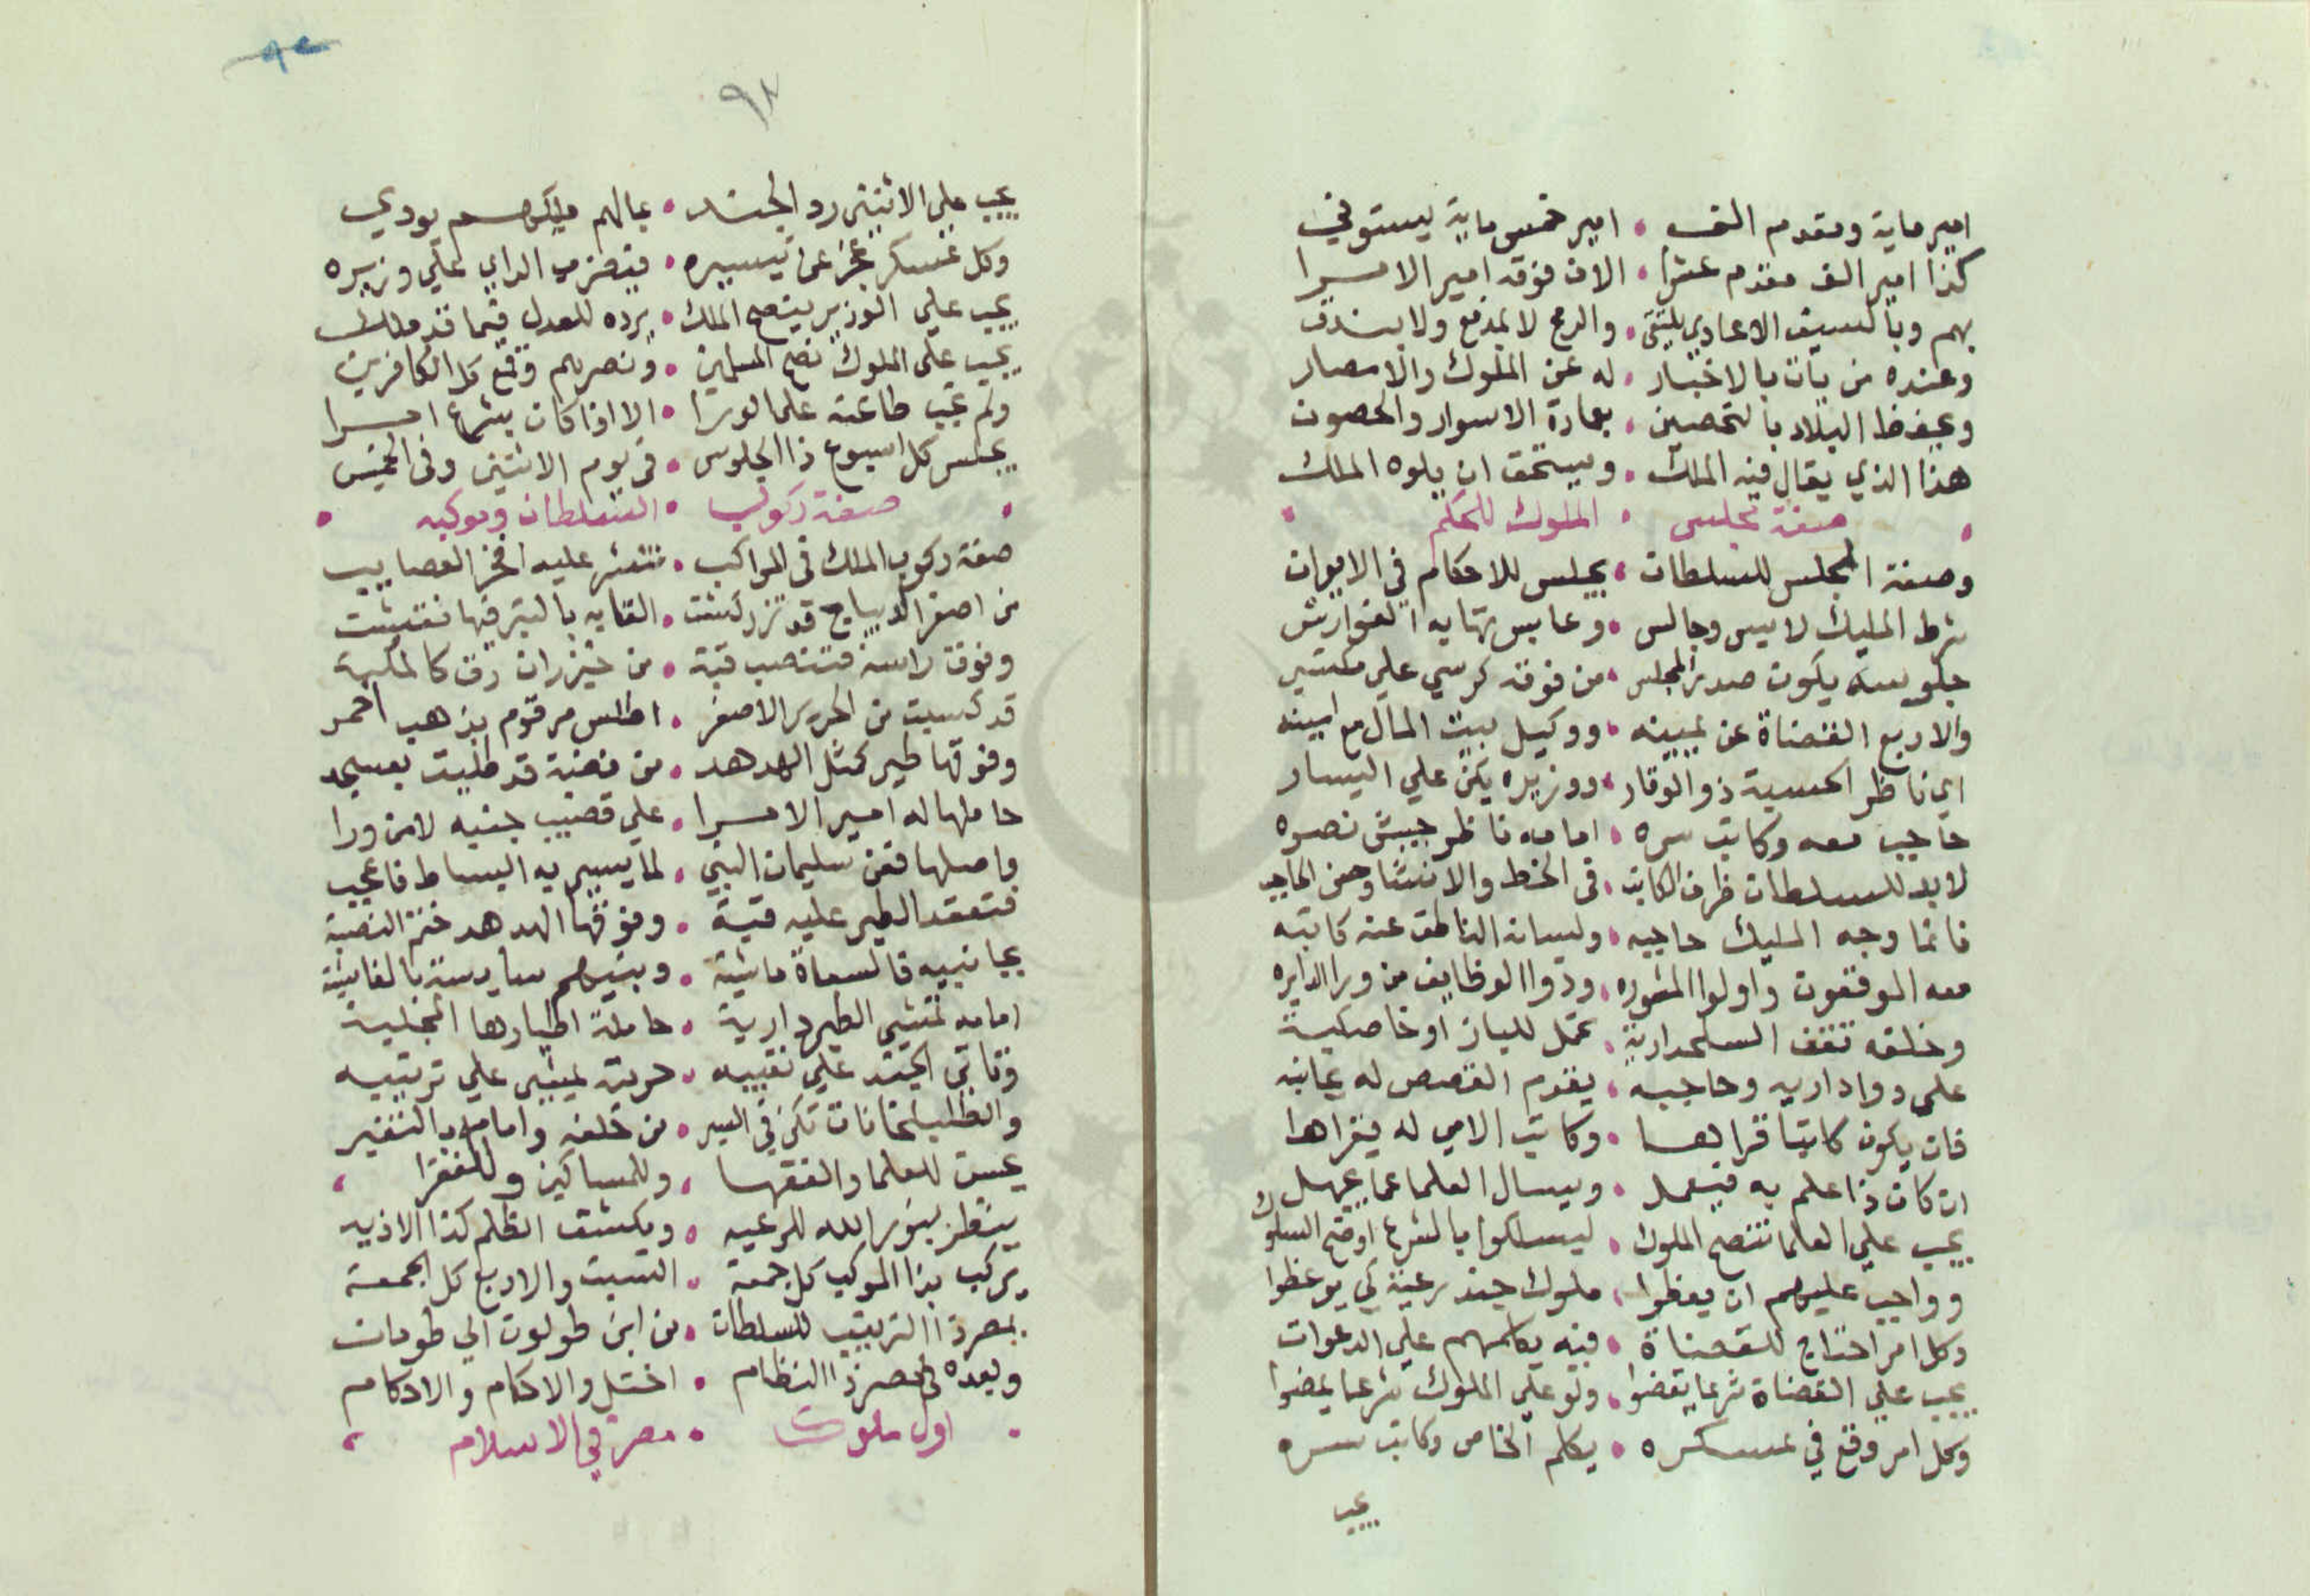 امير ماية ومقدم الف • امير خمس ماية يستوفي
كذا امير الف مقدم عشرا • الان فوقه امير الامرا
بهم وبالسيف الاعادي يلتقى • والرمح لا بمدفع ولا بندق
وعنده من يات بالاخبار • له عن الملوك والامصار
ويحفظ البلاد بالتحصين • بعمارة الاسوار والحصون
هذا الذي يقال فيه الملك • ويستحق ان يلوه الملك
صفة مجلس • الملوك للحكم
وصفة المجلس للسلطان • يجلس للاحكام في الايوان
شرط المليك لابيس وجالس • وعابس تهابه الفوارس
جلوسه يكون صدر المجلس • من فوقه كرسي علي
والاربع القضاة عن يمينه • ووكيل بيت المال مع امينه
اي ناظر الحسبة ذو الوقار • ووزيره يكن علي اليسار
حاجب معه وكاتب سره • امامه ناظر جيش نصره
لابد للسلطان ظرف الكاتب • في الخط والانشا وحسن الحاجب
فانما وجه المليك حاجبه • ولسانه الناطق عنه كاتبه
معه الموقعون واولوا المشوره • وذوا الوظايف من ورا الدايره
وخلفه تقف السلحدارية • تحمل للباز او خاصكية
على دواداريه وحاجبه • يقدم القصص له بجانبه
فان يكون كاتبا قراها • وكاتب الامي له يقراها
ان كان ذا علم به فيعمل • ويسال العلما عما يجهل
يجب علي العلما تنصح الملوك • ليسلكوا بالشرع اوضح السلوك
وواجب عليهم ان يعظوا • ملوك جند رعية كي يوعظوا
وكل امر احتاج للقضاة • فيه يكلمهم علي الدعوات
يجب علي القضاة شرعا يقضوا • ولو علي الملوك شرعا يمضوا
وكل امر وقع في عسكره • يكلم الخاص وكاتب سره
يجب
٩٢
يجب علي الاثنين رد الجند • بمالهم مليكهم يودي
وكل عسكر عجز عن تيسيره • الراي علي وزيره
يجب علي الوزير ينصح الملك • يرده للعدل فيما قد ملك
يجب علي الملوك نصح المسلمين • ونصرهم وقمع كل الكافرين
ولم تجب طاعته علي الورا • الا اذا كان بشرع امرا
يجلس كل اسبوع ذا الجلوس • في يوم الاثنين وفي الخميس
صفة ركوب • السلطان وموكبه
صفة ركوب الملك في المواكب • تنشر عليه افخر العصايب
من اصفر الديباج قد تزركشت • القابه بالتبر فيها نقشت
وفوق راسه فتنصب قبة • من خيزران رق كالمكبة
قد كسيت من الحرير الاصفر • اطلس مرقوم بذهب احمر
وفوقها طير كمثل الهدهد • من فضة قد طليت بعسجد
حاملها له امير الامرا • علي قضيب جنبه لا من ورا
واصلها فعن سليمان النبي • لما يسير به البساط فاعجب
فتعقد الطير عليه قبة • وفوقها الهدهد ختم النصبة
بجانبيه فالسعاة ماشية • وبينهم سايسه بالغاشية
امامه تمشي الطبردارية • حاملة اطبارها المجلية
وتاتي الجند علي نقيبه • حريته يمشي علي ترتيبه
والطبلخانات تكن في السير • من خلفه وامامه بالنفير
يحسن للعلما والفقها • وللمساكين وللفقرا
ينظر بنور الله للرعيه • ويكشف الظلم كذا الاذيه
يركب بذا الموكب كل جمعة • السبت والاربع كل الجمعة
بمصر ذا الترتيب للسلطان • من ابن طولون الي طومان
وبعده في مصر ذا النظام • اختل والاحكام والاحكام
اول ملوك • مصر في الاسلام